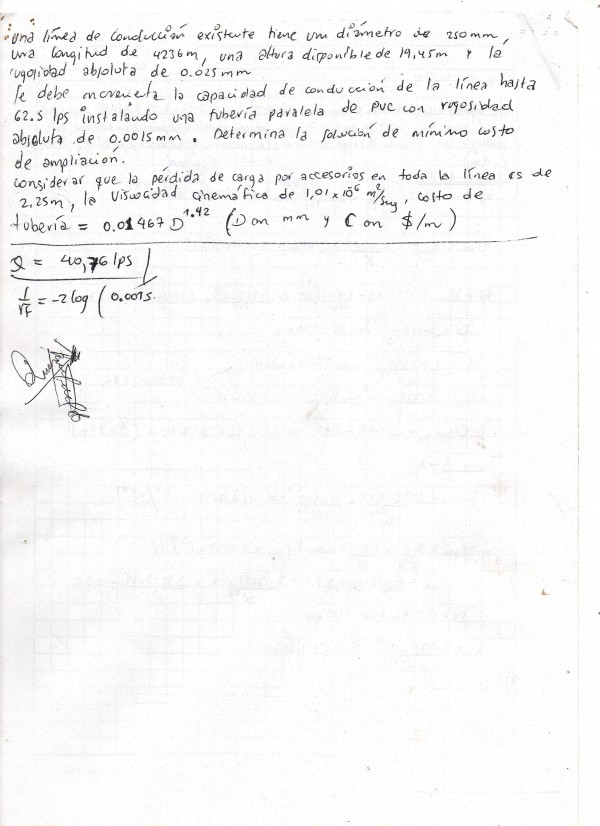 Una línea de conducción existente tiene um diámetro de 250mm,
una longitud de 4236m, una altura disponible de 19,45m y la
rugosidad absoluta de 0.025mm
Se debe incrementa la capacidad de conducción de la línea hasta
62.5 lps instalando una tubería paralela de PVC con rugosidad
absoluta de 0.0015mm. Determina la solución de mínimo costo
de ampliación.
considerar que la pérdida de carga por accesorios en toda la línea es de
2,25m, la Viscocidad cinemática de 1,01 x 10⁶ m²/seg, costo de
tubería = 0.01467 D^1.42 (D en mm y C en $/m)
Q = 40,76 lps
1/√f = -2 log ( 0.0015